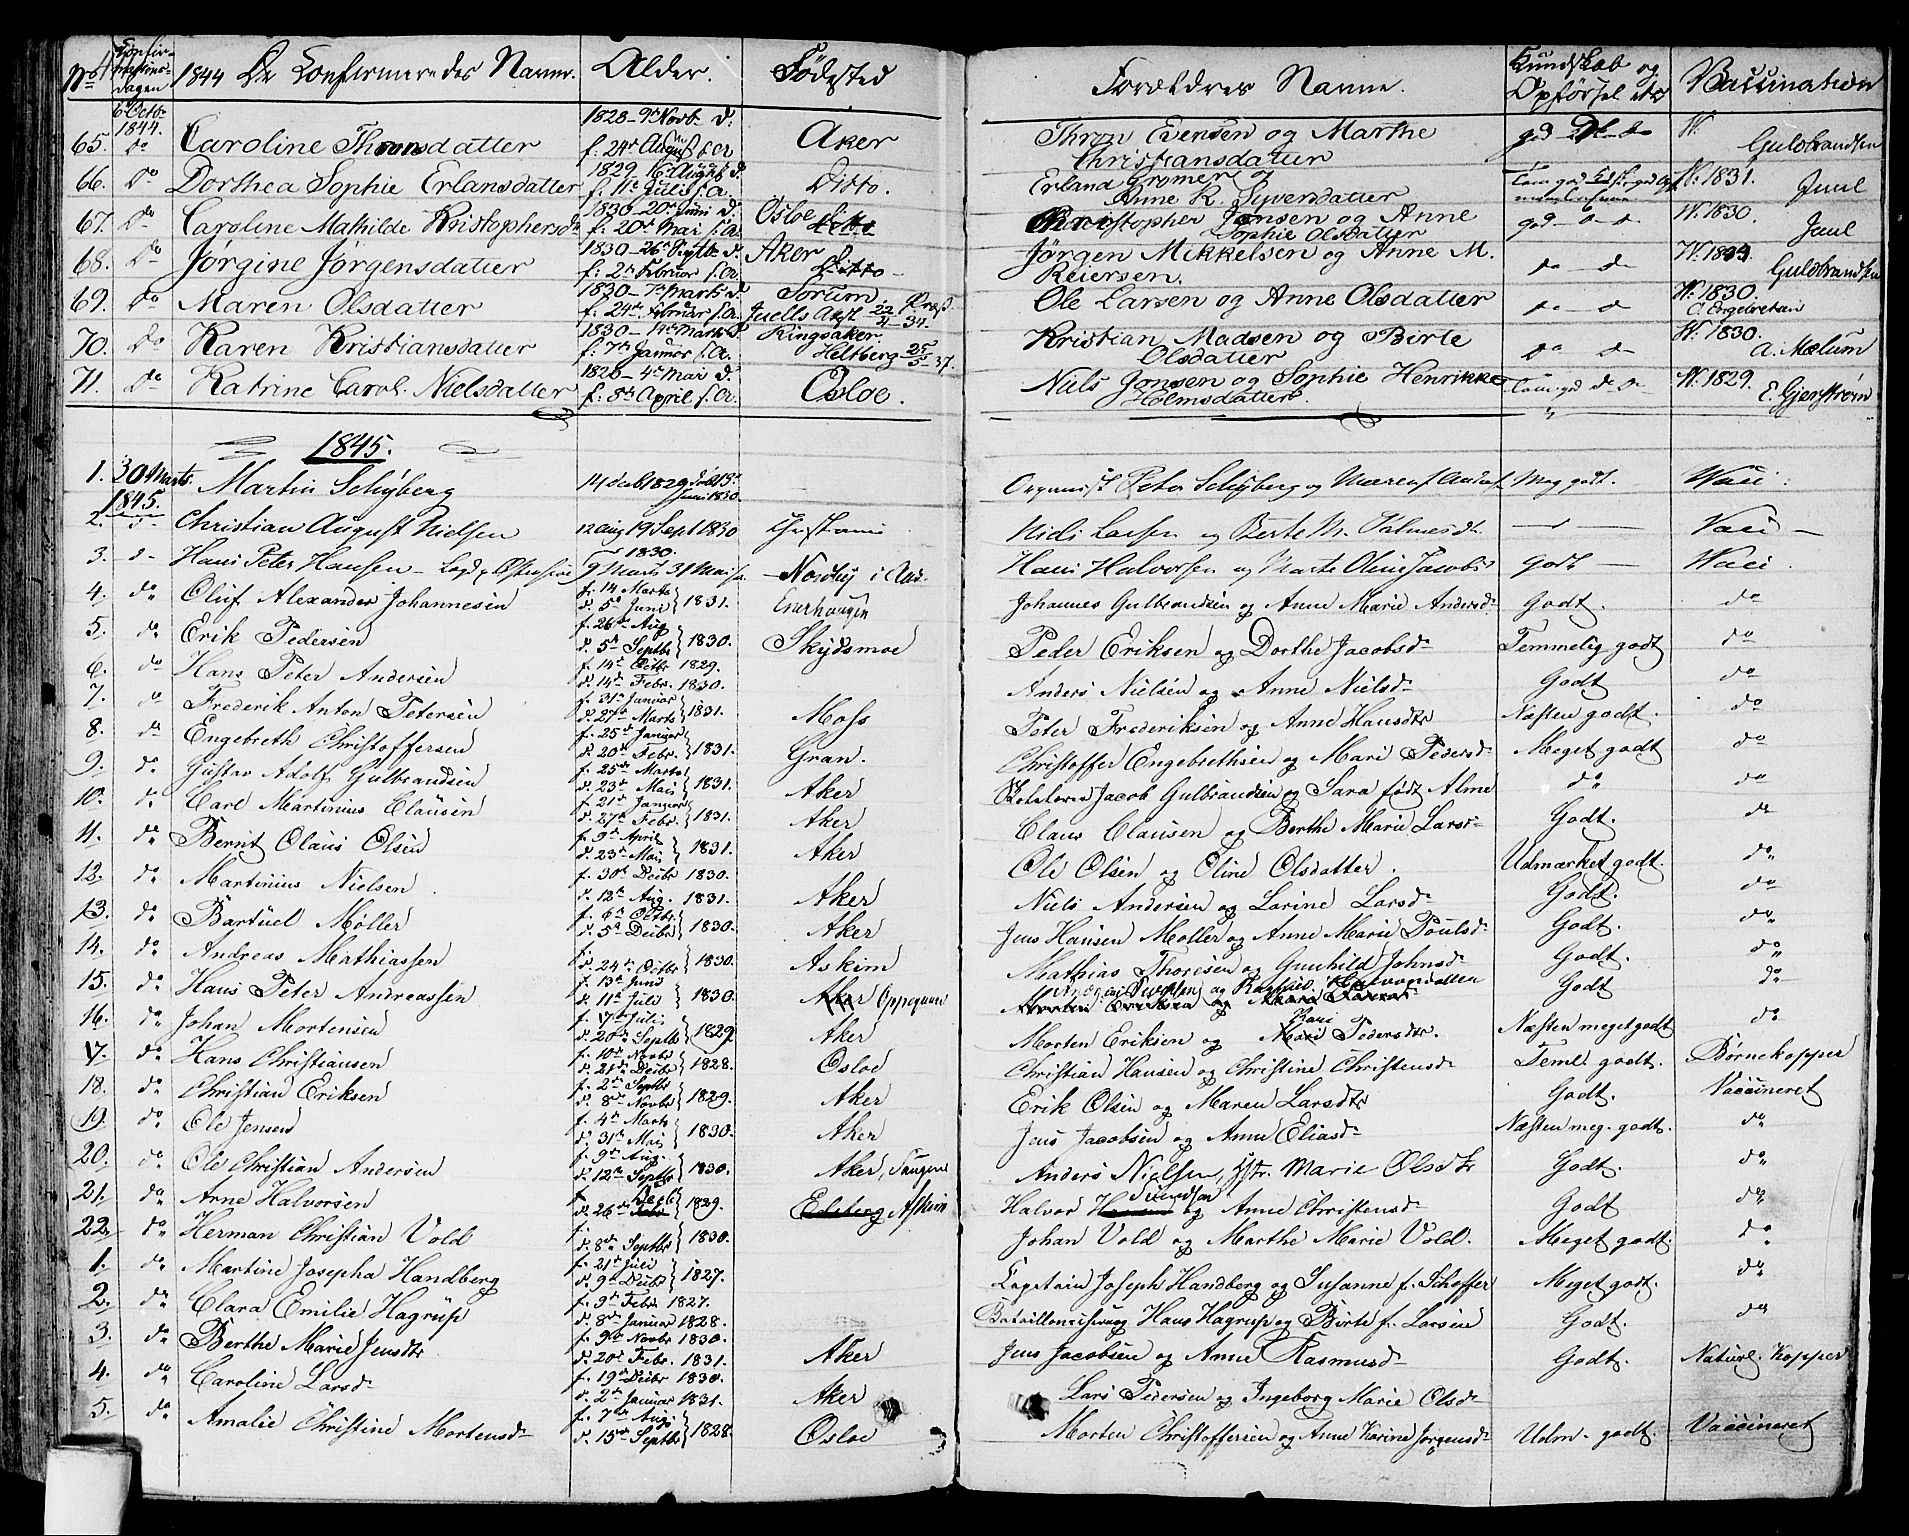 No. Confirmations-dagen 1844 De Confirmeredes Navne. Alder. Fødested Forældres Navne. Kundskab og Opførsel Vaccination
6 Octb. 1844.
65. do Caroline Thronsdatter 1828 9de Novb. d: f: 24de August Aker Thron Evensen og Marthe Christiansdatter god W. Guldbrandsen
66. Do Dorthea Sophie Erlansdatter 1829 16 Augst d. f. 11te Julii s.A. Ditto. Erland Cromer og Anne K. Siversdatter W. 1831. Juul
67. Do Caroline Mathilde Kristophersd 1830 20de Juni d. f. 20de Mai s.A. Osloe Christopher Jensen og Anne Sophie Olsdatter god W. 1830. Juul
68. Do Jørgine Jørgensdatter 1830 26de Septb. d. f: 2de Februar s.A. Aker Jørgen Mikkelsen og Anne M. Reiersen. do Guldbrandsen
69. do Maren Olsdatter 1830 7de Marts d. f. 24de Februar s.A. Sorum. Ole Larsen og Anne Olsdatter do W. 1830. E. Engebretsen
70. Do Karen Kristiansdatter 1830 14de Marts d f: 7de Januar s.A. Ringsaker. Heltberg 25/5 37. Kristian Madsen og Birte Olsdatter do W. 1830. A. Mælum
71. Do Katrine Carol. Nielsdatter 1826 4de Mai d. f: 8de April s.A. Osloe. Niels Jonsen og Sophie Henrikke Holmsdatter. W. 1829. E. Gjerstrøm
1845.
1. 30 Marts. 1845. Martin Schyberg 14 decb 1829 døbt 13 Juni 1830. Organist Peter Schyberg og Meg godt. Vacc.
2. Christian August Nielsen 12 aug 19 Sept 1830 Niels Larsen og Berte M. Vacc
3. d Hans Peter Hansen 9 Marts 31 Mai 1830. Nordby i Aas. Hans Halvorsen og Marte Oline Jacobsd godt Vacc
4. do Oluf Alexander Johannesen f. 14 Marts d. 5te Juni 1831. Enerhaugen Johannes Gulbrandsen og Anne Marie Andersd. Godt. do
5. do Erik Pedersen f. 26de Aug d. 5te Septbr 1830. Skydsmoe Peder Eriksen og Dorthe Jacobsd. Temmelig godt do
6. do Hans Peter Andersen f. 14de Octbr 1829. d. 14de Febr. 1830. Anders Nielsen og Anne Nielsd. Godt do
7. do Frederik Anton Petersen f. 31te Januar d. 27de Marts 1831. Moss Peter Frederiksen og Anne Hansdtr Næsten godt. do
8. do Engebreth Christoffersen f. 25de Januar d. 20de Febr. 1831. Gran. Christoffer Engebrethsen og Mari Pedersd. Meget godt do
9. do Gustav Adolf Gulbrandsen f. 25de Marts d. 23de Mais 1831. Aker Jacob Gulbrandsen og Sara født Alme do do
10. do Carl Martinius Clausen f. 21de Januar d. 27de Febr. 1831. Aker Claus Clausen og Berthe Marie Larsd. Godt. do
11. do Bernt Olaus Olsen f. 9de April d. 23de Mais 1831. Aker Ole Olsen og Eline Olsdatter. Udmærket godt. do
12. do Martinius Nielsen f. 30te Decbr 1830. d. 12te Aug. 1831. Aker Niels Andersen og Larine Larsd. Godt. do
13. do Bartuel Møller f. 6te Octbr. d. 5te Decbr. 1830. Aker Jens Hansen Møller og Anne Marie Poulsd. Godt. do
14. do Andreas Mathiassen d. 24de Octbr 1830. Askim Mathias Thoresen og Gunhild Johnsd. Godt. do
15. do Hans Peter Andreassen f. 13de Juni d. 11te Juli 1830. Aker Oppegaard Godt do
16. do Johan Mortensen f. 17de Julii d. 20de Septbr 1829. Aker Morten Eriksen og Kari Pedersdtr. Næsten meget godt do
17. do Hans Christiansen f. 10de Novbr d. 21de Decbr 1828. Osloe Christian Hansen og Christine Christensd. Teml. godt. Børnekopper
18. do Christian Eriksen f. 2de Septbr d. 8de Novbr 1829. Aker Erik Olsen og Maren Larsdtr Godt. Vaccineret
19. do Ole Jensen f. 4de Marts d. 31te Mais 1830. Aker Jens Jacobsen og Anne Eliasd. Næsten meg. godt. do
20. do Ole Christian Andersen f. 9de Aug. d. 12te Septbr 1830. Aker, Anders Nielsen, Marie Olsdtr Godt. do
21. do Arne Halvorsen d. 26de Decbr 1829. Edsberg Askim Halvor og Anne Christensd. Godt do
22. do Herman Christian Vold f. d. 8de Septbr 1830. Johan Vold og Marthe Marie Vold. Meget godt. do
1. do Martine Josepha Handberg f. 21de Juli d. 9de Decbr 1827. Capetain Joseph Handberg og Susanne f. Schoffer Meget godt. do
2. do Clara Emilie Hagrup f. 9de Febr 1827. d. 8de Januar 1828. Hans Hagrup og Birte f. Larsen Godt. do
3. do Berthe Marie Jensdtr f. 9de Novbr 1830. d. 20de Febr. 1831. Aker Jens Jacobsen og Anne Rasmusd. Godt. Naturl. Kopper
4. do Caroline Larsd. f. 19de Decbr 1830. d. 2de Januar 1831. Aker Lars Pedersen og Ingeborg Marie Olsd.
5. do Amalie Christine Mortensd. f. 7de Aug. d. 15de Septbr 1828. Osloe Morten Christoffersen og Anne Karine Jørgensd. Udm. godt. Vaccineret